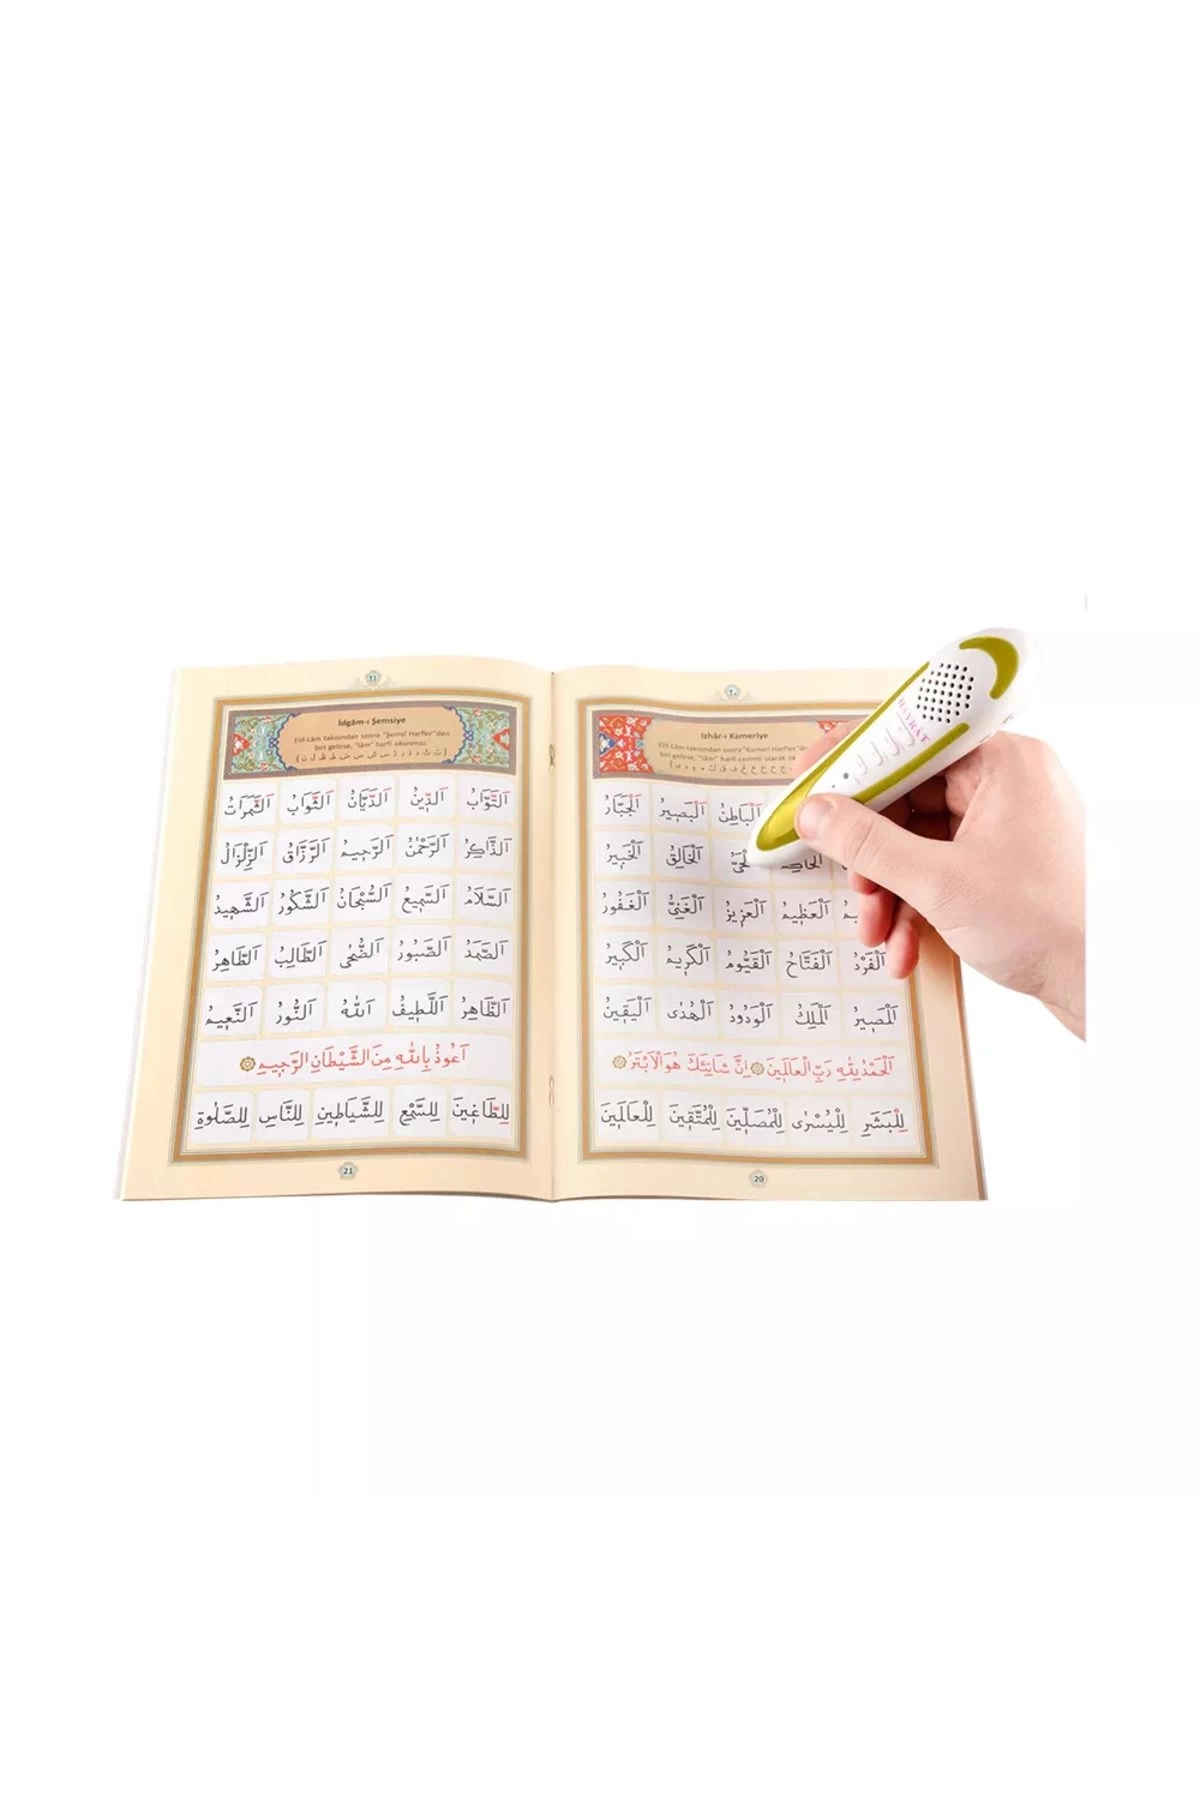 ٢٠
Izhâr-ı Kameriye
Elif-Lâm takısından sonra "Kamerî Harfler"den
biri gelirse, "lâm" harfi cezimli olarak
اَلْبَاطِنُ اَلْبَصِيرُ اَلْجَبَّارُ
اَلْخَالِقُ اَلْخَبِيرُ
اَلْعَظِيمُ اَلْعَزِيزُ اَلْغَنِيُّ اَلْغَفُورُ
اَلْفَرْدُ اَلْفَتَّاحُ اَلْقَيُّومُ اَلْكَرِيمُ اَلْكَبِيرُ
اَلْمَصِيرُ اَلْمَلِكُ اَلْوَدُودُ اَلْهُدٰى اَلْيَقِينُ
اَلْحَمْدُ لِلّٰهِ رَبِّ الْعَالَمِينَ ۞ اِنَّ شَانِئَكَ هُوَ الْاَبْتَرُ ۞
لِلْبَشَرِ لِلْيُسْرٰى لِلْمُصَلِّينَ لِلْمُتَّقِينَ لِلْعَالَمِينَ
20
HAYRAT
٢١
İdgâm-ı Şemsiye
Elif-Lâm takısından sonra "Şemsî Harfler"den
biri gelirse, "lâm" harfi okunmaz.
(ت ث د ذ ر ز س ش ص ض ط ظ ل ن)
اَلتَّوَّابُ اَلدِّينُ اَلدَّيَّانُ اَلثَّوَابُ اَلثَّمَرَاتُ
اَلذَّاكِرُ اَلرَّحْمٰنُ اَلرَّحِيمُ اَلرَّزَّاقُ اَلزِّلْزَالُ
اَلسَّلَامُ اَلسَّمِيعُ اَلسُّبْحَانُ اَلشَّكُورُ اَلشَّهِيدُ
اَلصَّمَدُ اَلصَّبُورُ اَلضُّحٰى اَلطَّالِبُ اَلطَّاهِرُ
اَلظَّاهِرُ اَللَّطِيفُ اَللّٰهُ اَلنُّورُ اَلنَّعِيمُ
اَعُوذُ بِاللّٰهِ مِنَ الشَّيْطَانِ الرَّجِيمِ ۞
لِلطَّاغِينَ لِلسَّمْعِ لِلشَّيَاطِينِ لِلنَّاسِ لِلصَّلٰوةِ
21